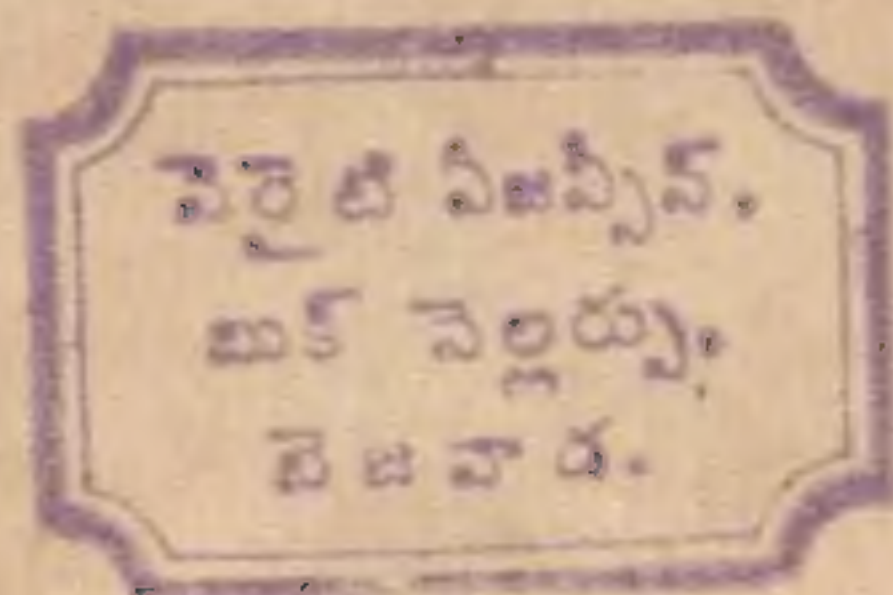 వెరైటీ ఏజన్సీస్.
బుక్ సెల్లర్సు.
బెజవాడ.